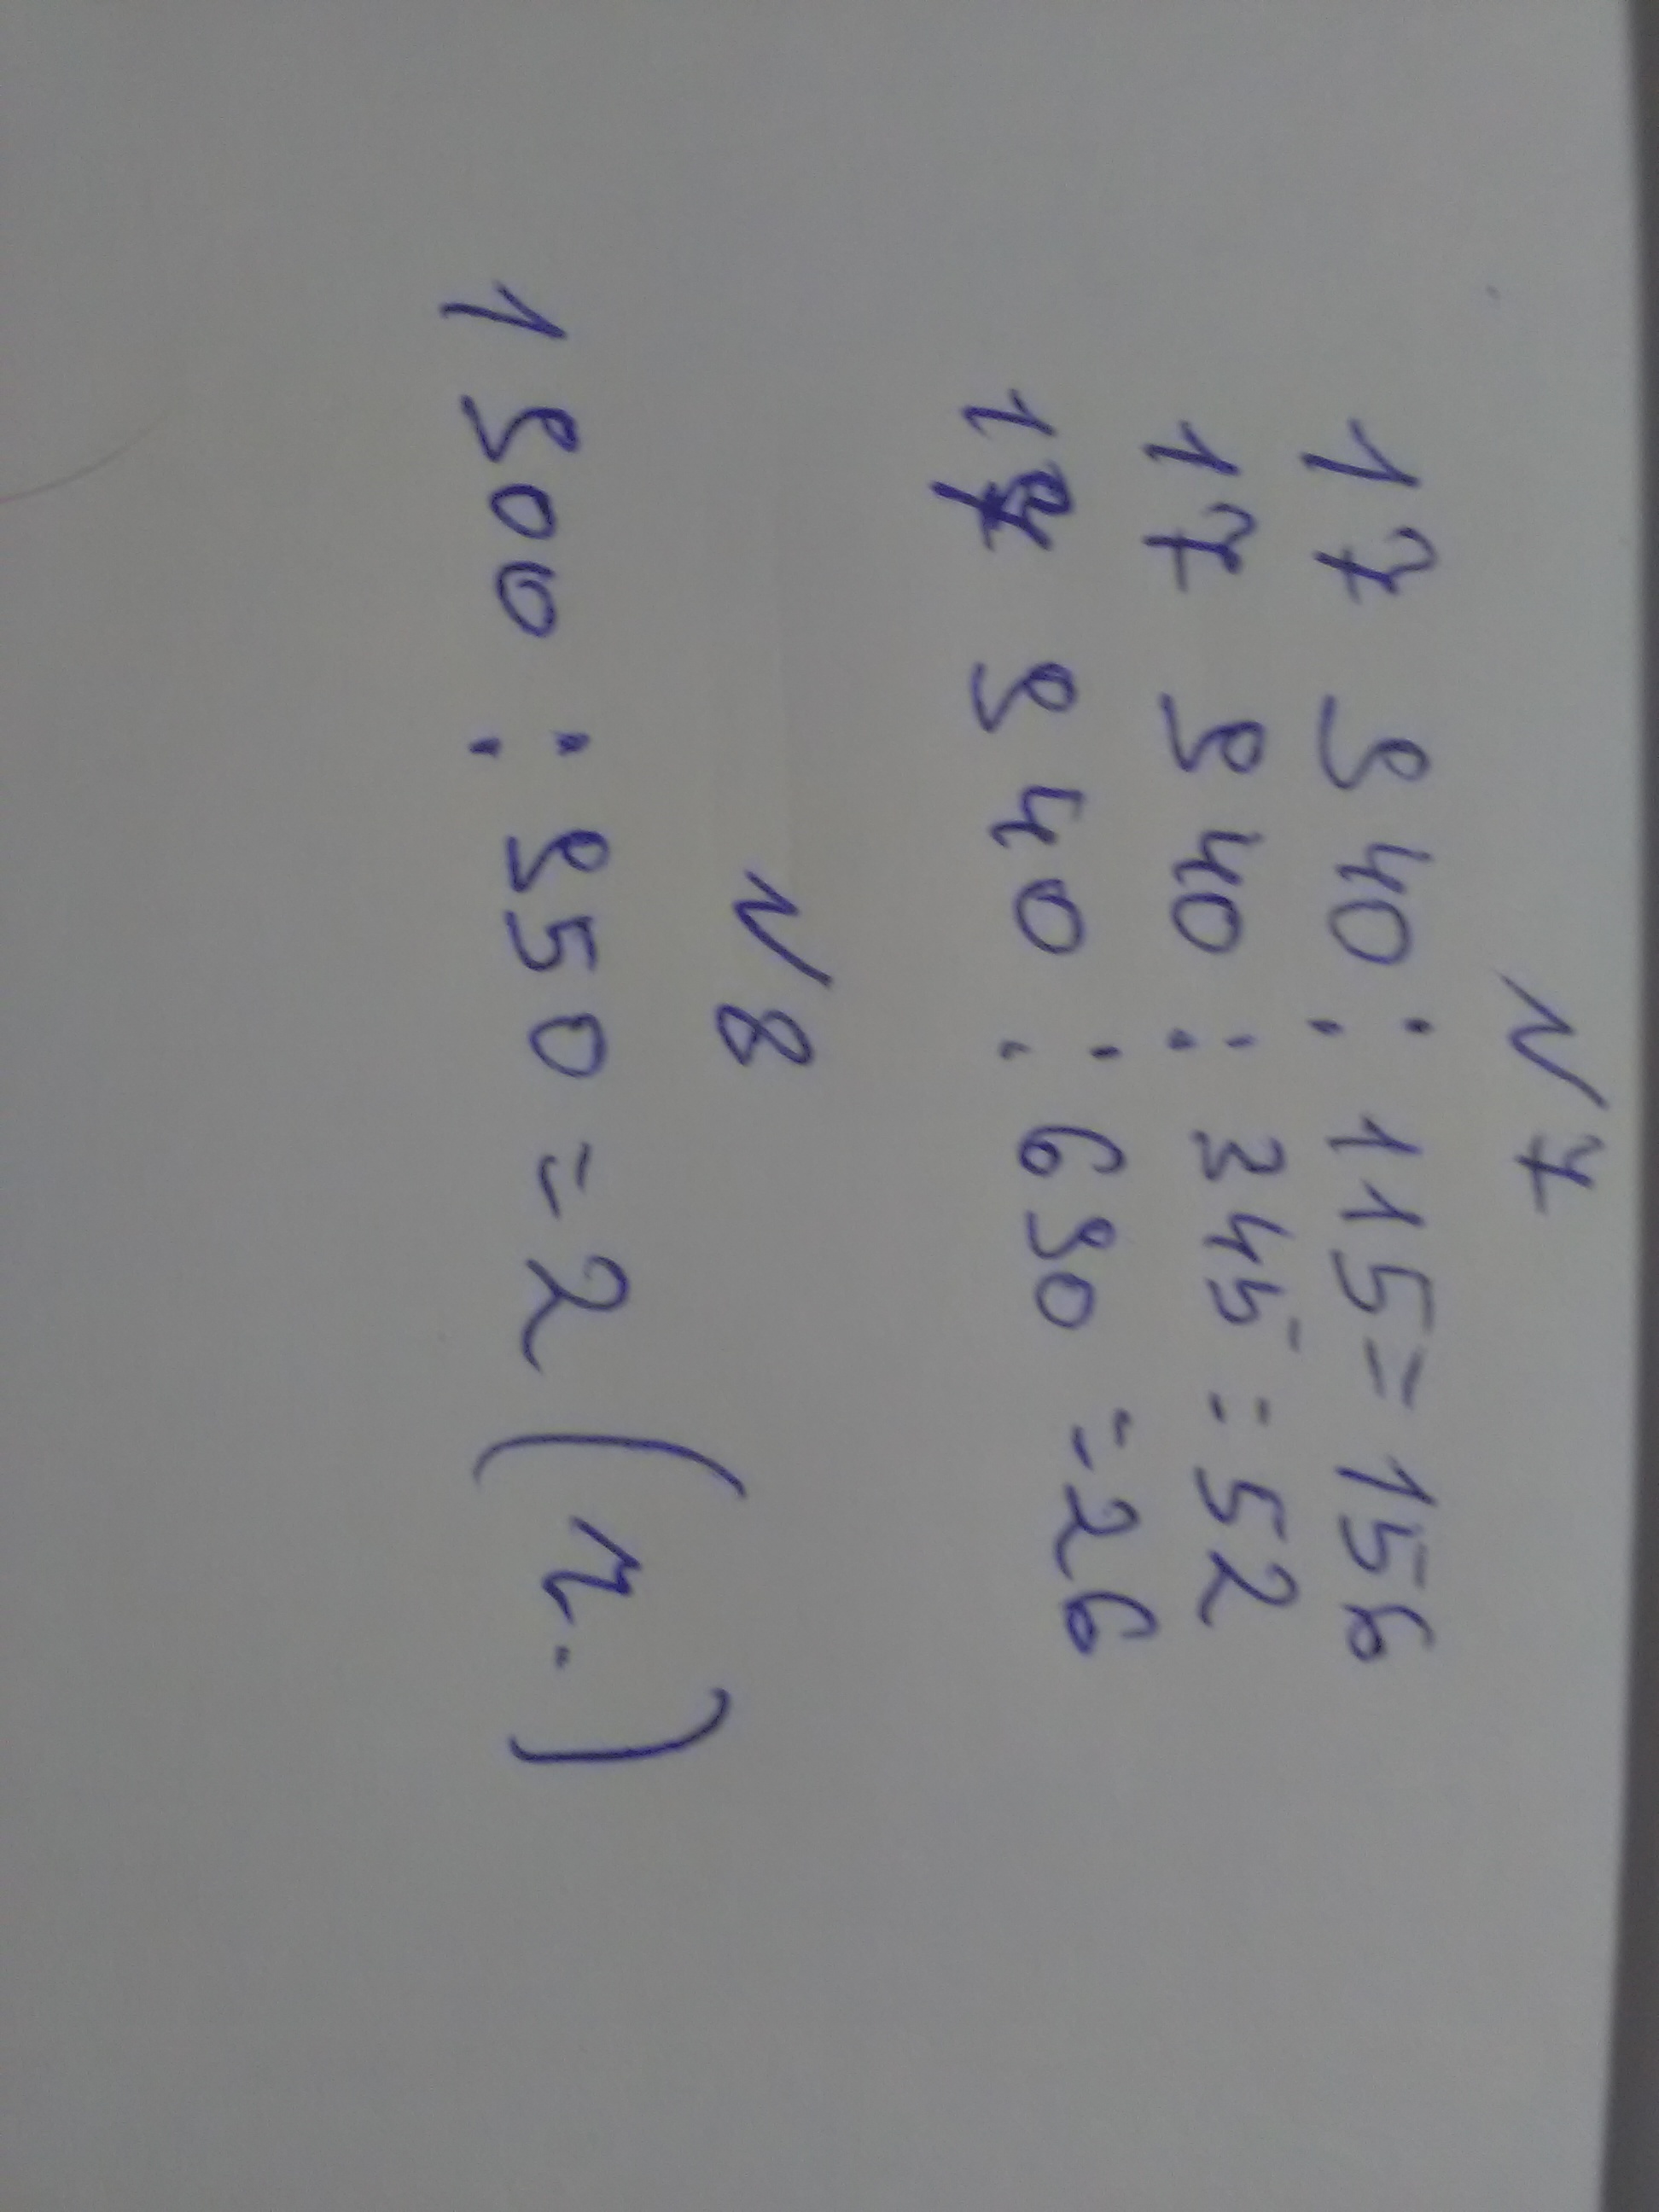 N 7
17 940 : 115 = 156
17 940 : 345 = 52
17 940 : 690 = 26
N 8
1 900 : 950 = 2 (ч.)